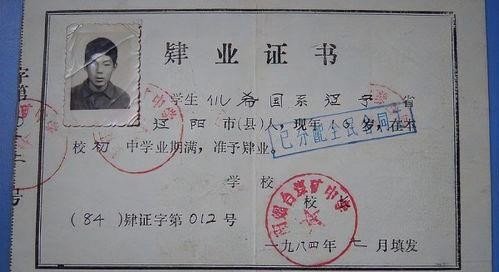 肄业证书
学生 仉希国系辽宁省
辽阳市(县)人,现年 岁,在本
已分配全民合同
校 初 中学业期满,准予肄业。
学校
校
烟台煤矿中学
(84)肄证字第012号
一九八四年 月填发
字第
号